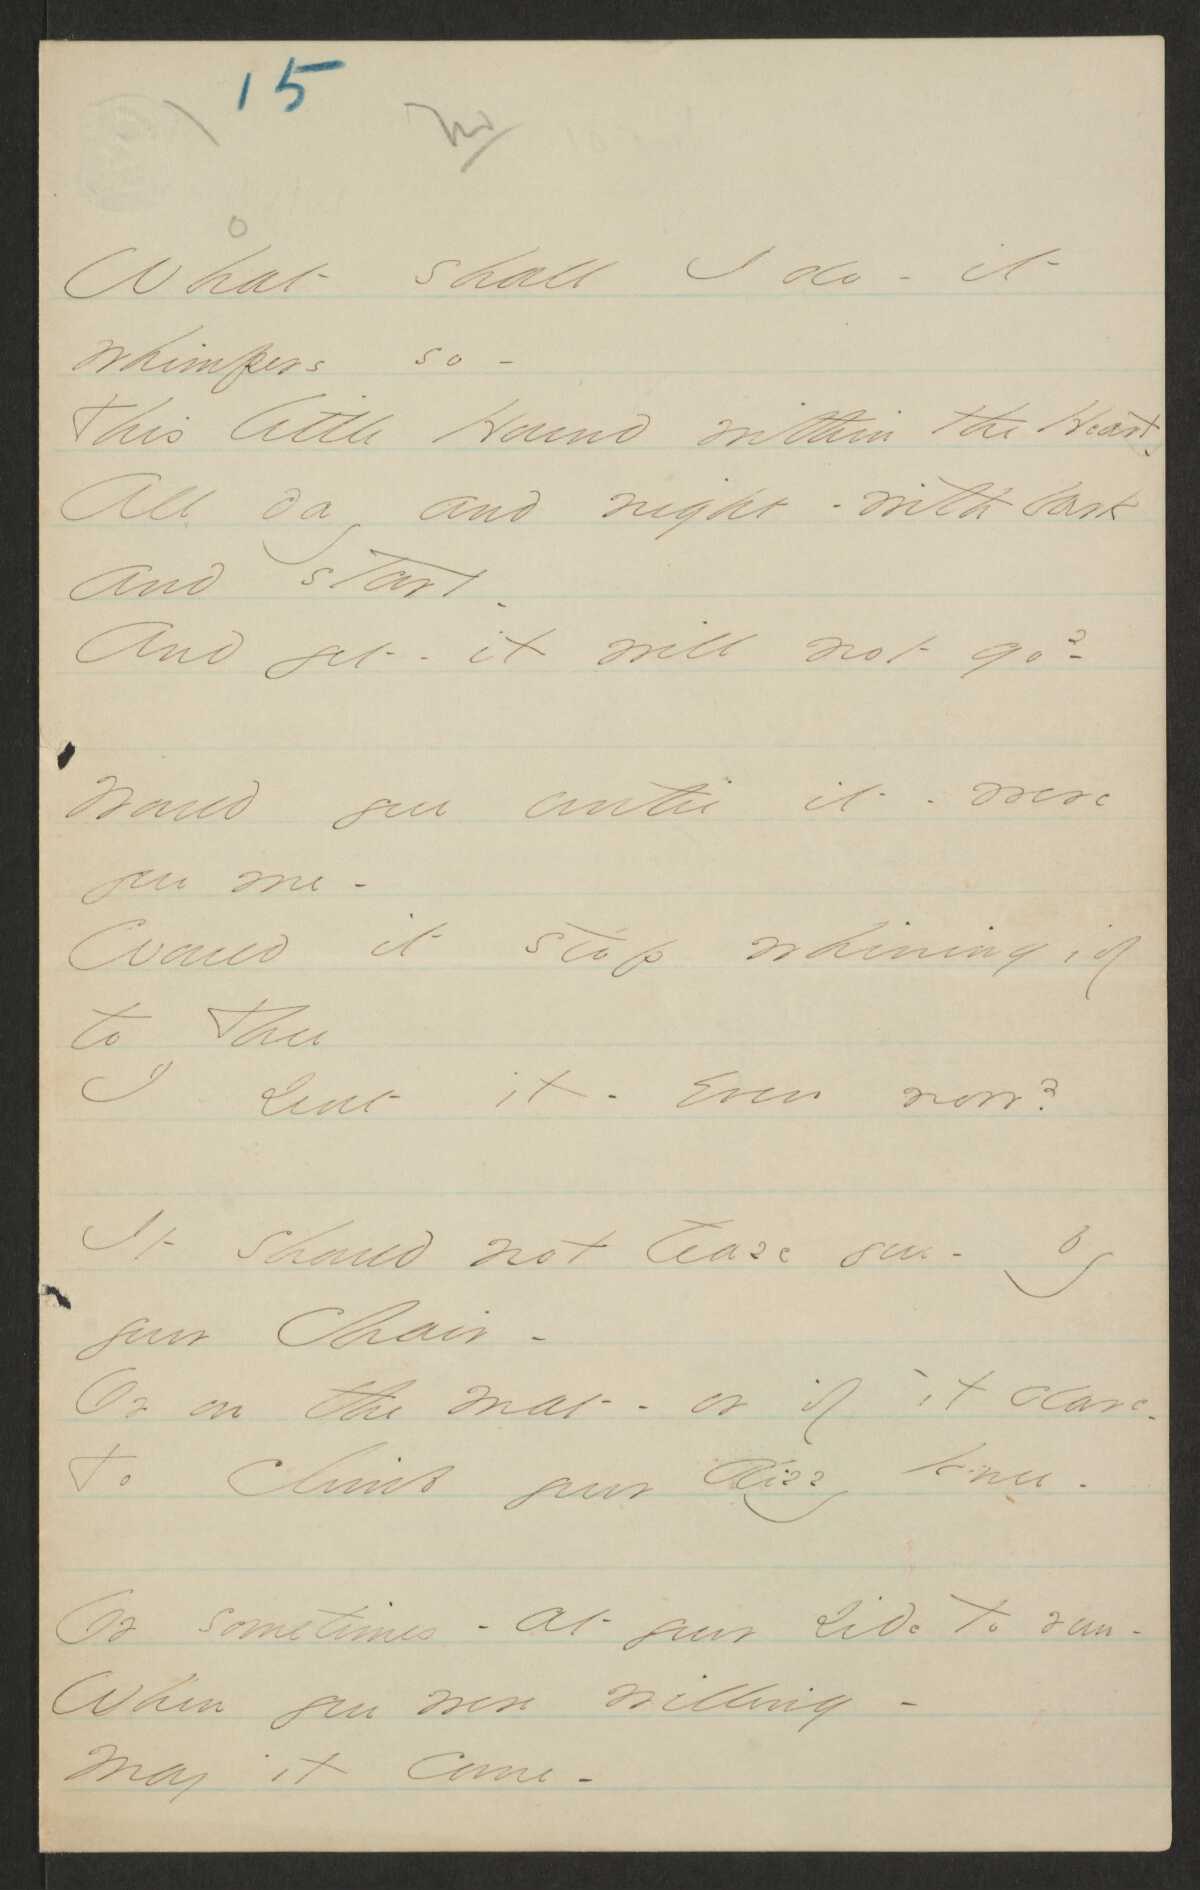 15
What shall I do - it
whimpers so -
This little Hound within the Heart
All day and night - with bark
and start -
And yet - it will not go?
Would you untie it - were
you me -
Would it stop whining, if
to Thee
I sent it - Even now?
It should not teaze you - by
your Chair -
Or on the mat - or if it dare -
To climb your dizzy knee -
Or sometimes - at your side to run -
When you were willing -
May it come -